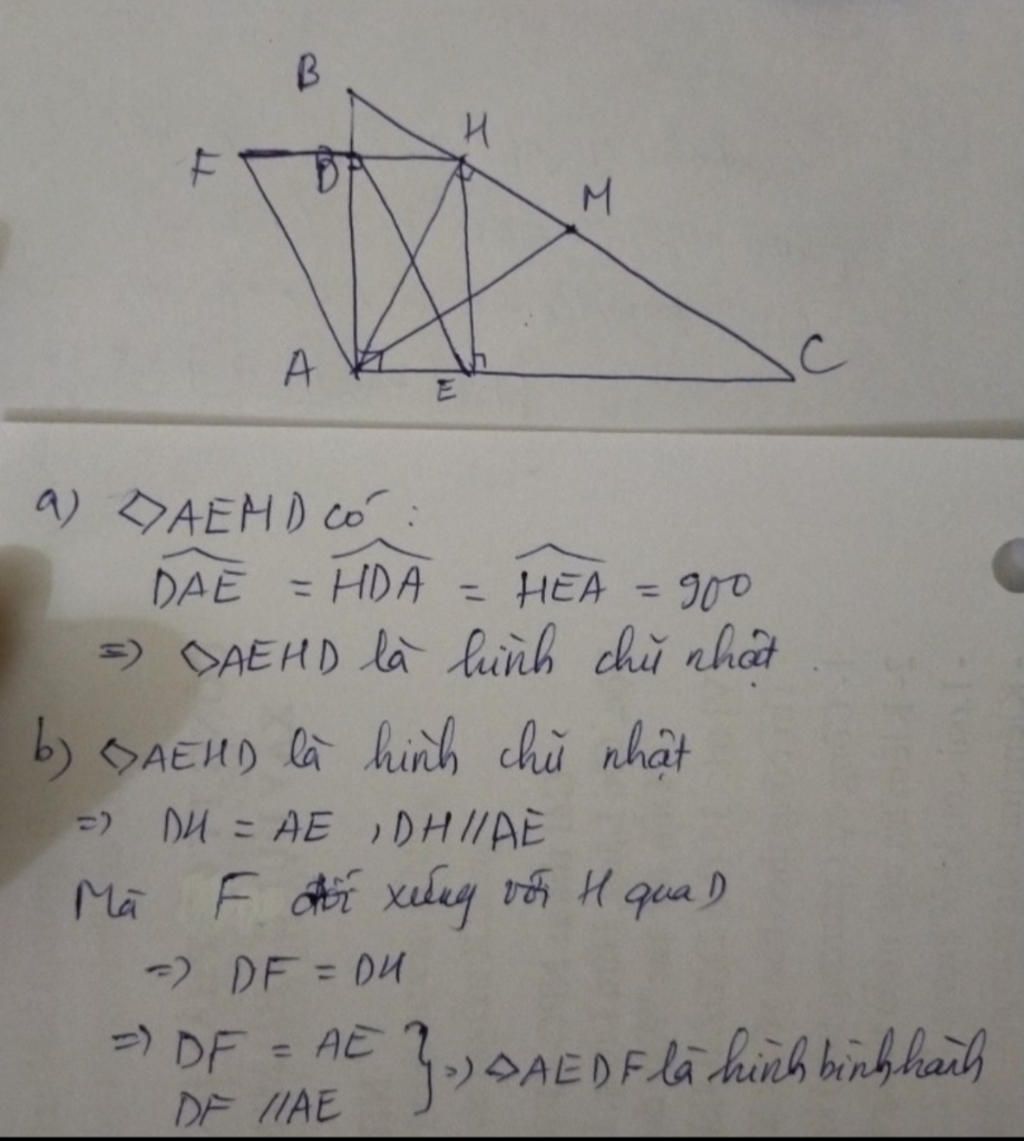 B
H
F
D
M
A
E
C
a) ◇AEHD có :
DAE = HDA = HEA = 90⁰
=> ◇AEHD là hình chữ nhật.
b) ◇AEHD là hình chữ nhật
=> DH = AE , DH // AE
Mà F đối xứng với H qua D
=> DF = DH
=> DF = AE } => ◇AEDF là hình bình hành
DF // AE